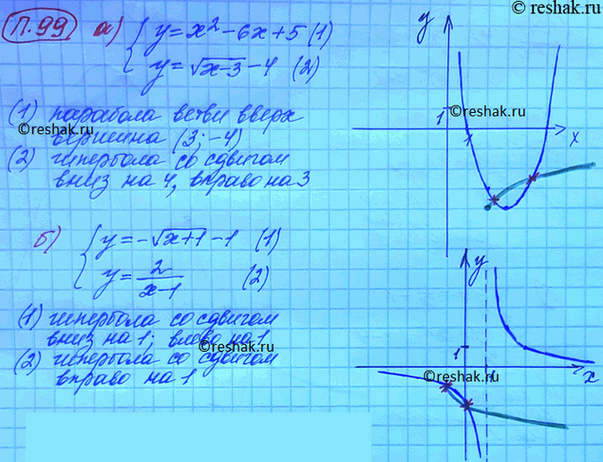 © reshak.ru
П.99 а) { y = x² - 6x + 5 (1)
y = √x-3 - 4 (2)
(1) парабола ветви вверх
© reshak.ru
вершина (3; -4)
(2) гипербола со сдвигом
вниз на 4, вправо на 3
y
© reshak.ru
1
1
x
б) { y = -√x+1 - 1 (1)
y = 2/x-1 (2)
(1) гипербола со сдвигом
вниз на 1; влево на 1
© reshak.ru
(2) гипербола со сдвигом
вправо на 1
y
1
© reshak.ru
1
x